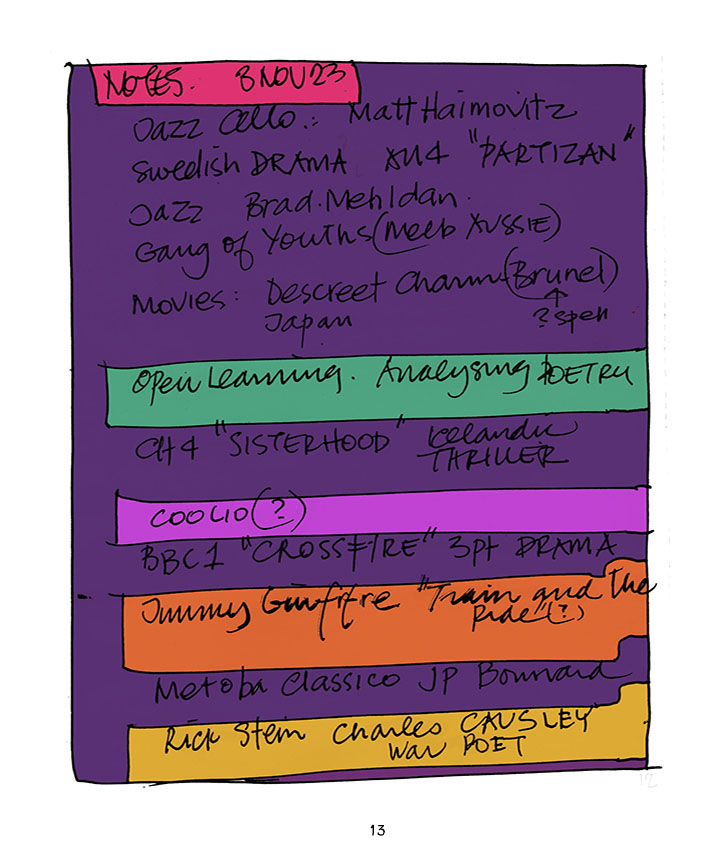 NOTES. 8 NOV 23
Jazz Cello.: Matt Haimovitz
Swedish DRAMA "PARTIZAN"
Jazz Brad. Mehldan.
Gang of Youths (Meeb AUSSIE)
Movies: Descreet Charm (Brunel)
Japan ? spell
Open Learning. Analysing POETRY
CH4 "SISTERHOOD" Icelandic
THRILLER
COOLIO (?)
BBC1 "CROSSFIRE" 3pt DRAMA
Jimmy Giuffre "Train and the
Ride" (?)
Metoba Classico JP Bonnard
Rick Stein Charles CAUSLEY
War POET
12
13